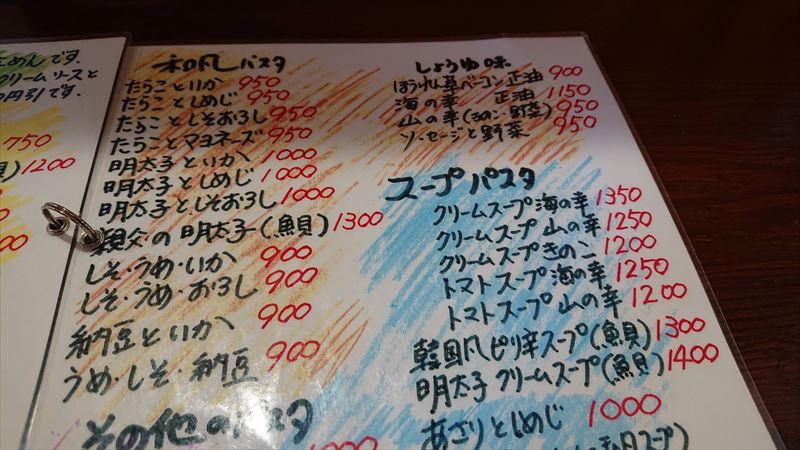 ためんです.
クリームソースと
円引です.
750
1200
和風パスタ
たらこといか 950
たらことしめじ 950
たらことしそおろし 950
たらことマヨネーズ 950
明太子といか 1000
明太子としめじ 1000
明太子としそおろし 1000
親父の明太子(魚貝) 1300
しそ・うめ・いか 900
しそ・うめ・おろし 900
納豆といか 900
うめ・しそ・納豆 900
その他のパスタ
しょうゆ味
ほうれん草ベーコン正油 900
海の幸 正油 1150
山の幸(きのこ・野菜) 950
ソーセージと野菜 950
スープパスタ
クリームスープ海の幸 1350
クリームスープ山の幸 1250
クリームスープきのこ 1200
トマトスープ海の幸 1250
トマトスープ山の幸 1200
韓国風ピリ辛スープ(魚貝) 1300
明太子クリームスープ(魚貝) 1400
あさりとしめじ 1000
スープ)